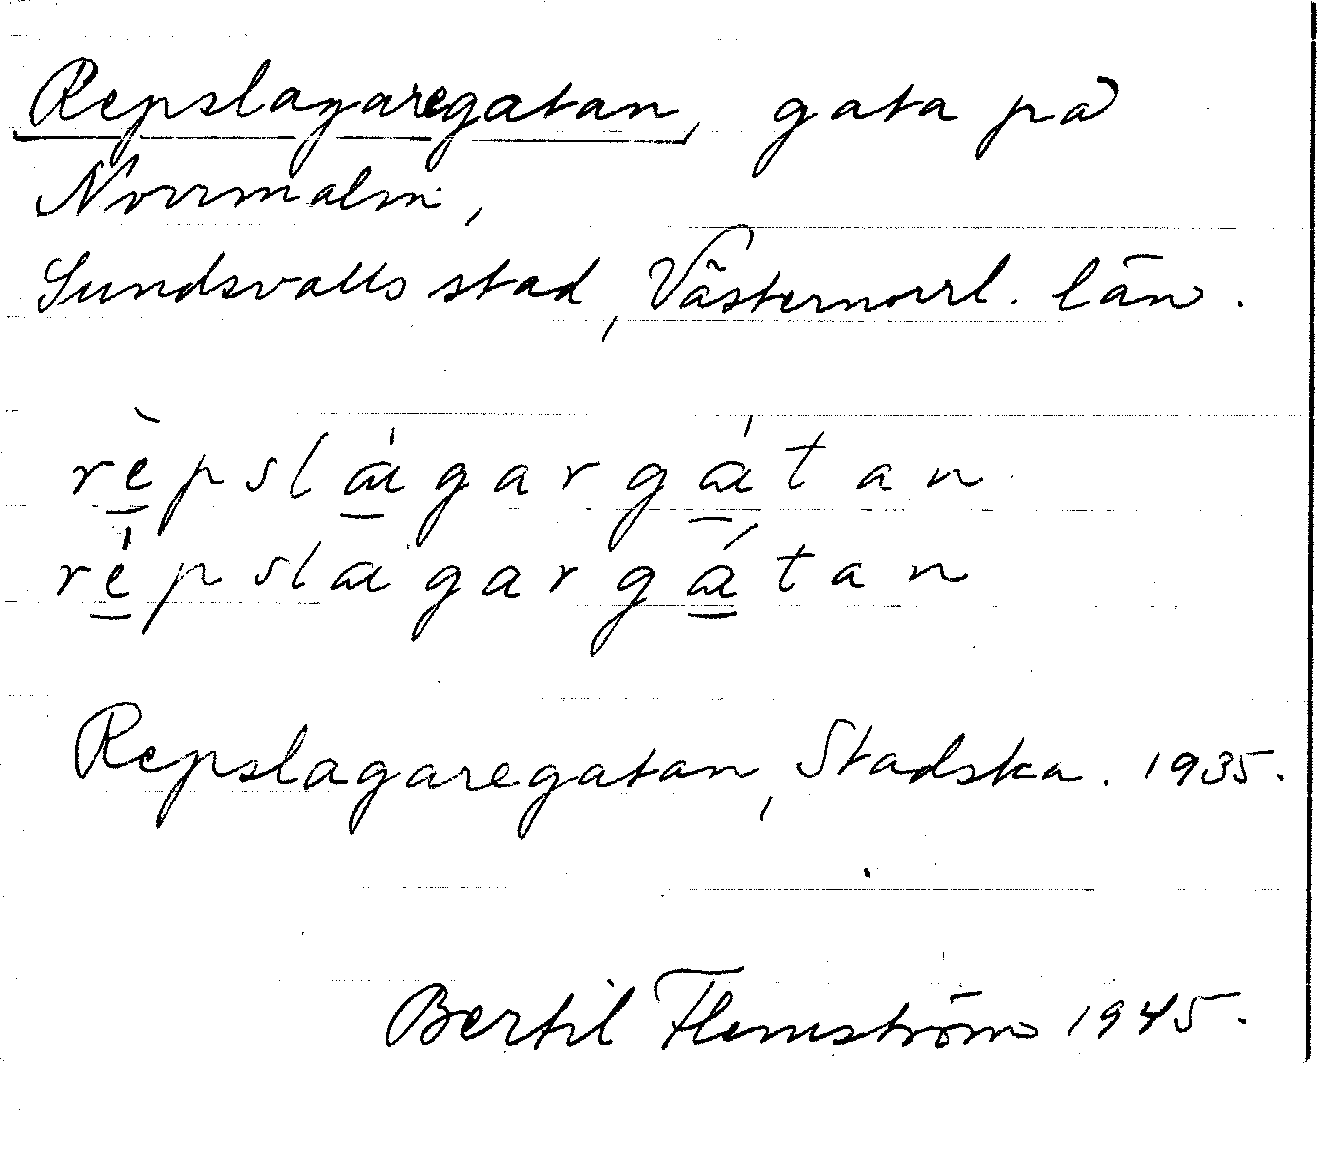 Repslagaregatan, gata på
Norrmalm,
Sundsvalls stad, Västernorrl. län.
rè̠pslá̠gargá̠tan
ré̠pslagargá̠tan
Repslagaregatan, Stadska. 1935.
Bertil Flemström 1945.